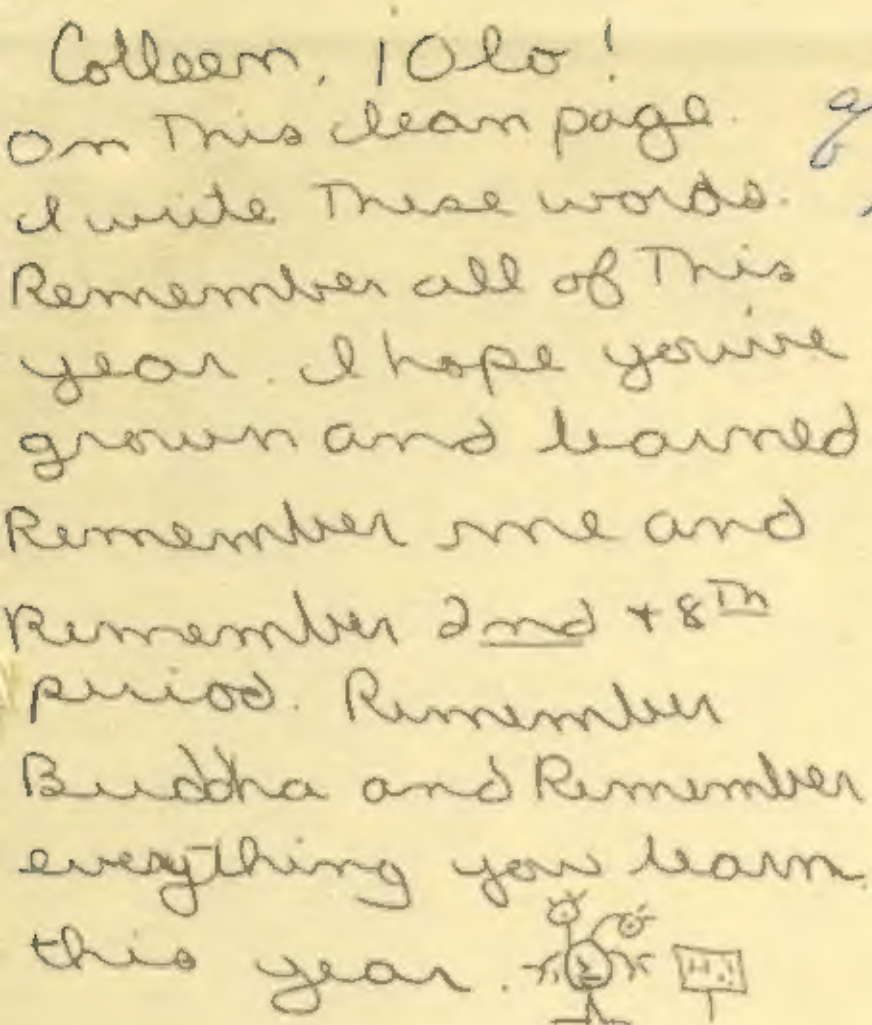 Colleen, ¡Olo!
On This clean page
I write These words.
Remember all of This
year. I hope you've
grown and learned
Remember me and
Remember 2nd + 8Th
period. Remember
Buddha and Remember
everything you learn
this year.
Hi!